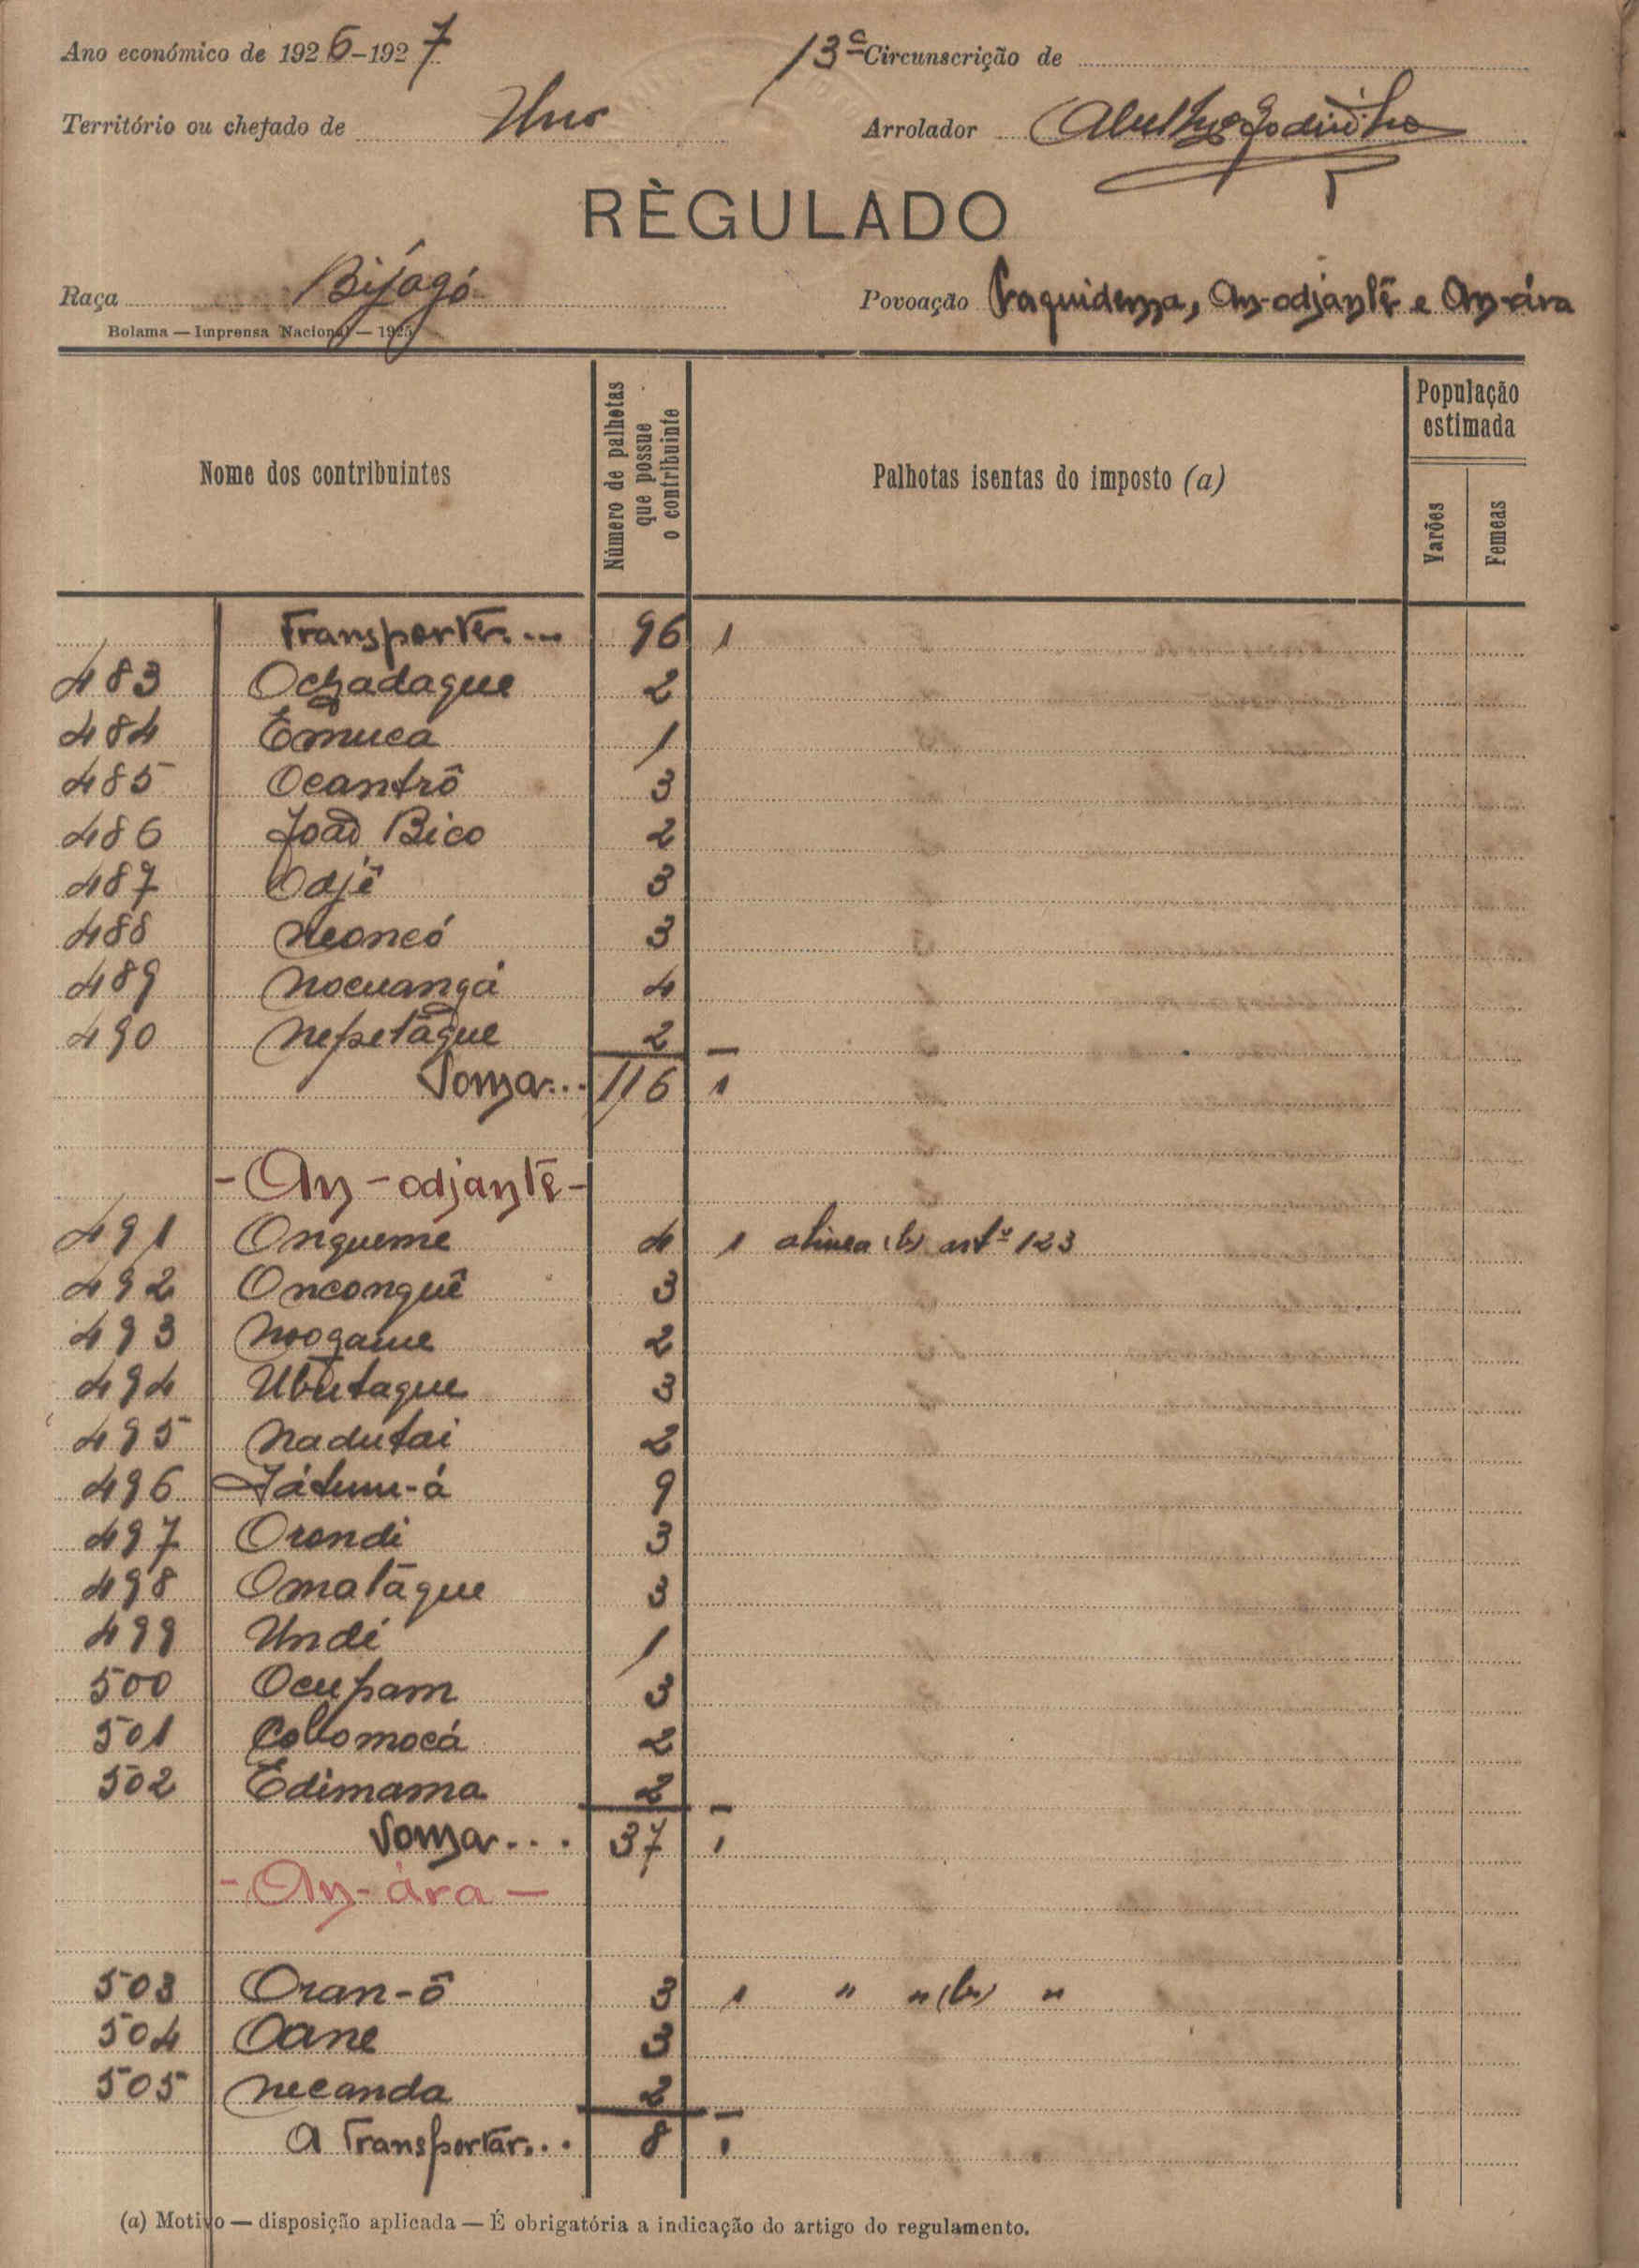 Ano económico de 1926-1927 13ª Circunscrição de
Território ou chefado de Uno Arrolador
RÈGULADO
Raça Bijagó Povoação An-odjantê e An-ára
Bolama — Imprensa Nacional — 1925
Nome dos contribuintes Número de palhotas que possue o contribuinte Palhotas isentas do imposto (a) População estimada Varões Femeas
Transporte... 96 1
483 Ochadague 2
484 Emuca 1
485 Ocantrô 3
486 João Bico 2
487 Odjê 3
488 Neoncó 3
489 Nocuangá 4
490 Nepetágue 2
Soma... 116 1
- An-odjantê -
491 Ongueme 4 1 alinea (b) artº 123
492 Onconguê 3
493 Noogame 2
494 Ubutague 3
495 Nadutai 2
496 Játum-á 9
497 Orondi 3
498 Omatágue 3
499 Undí 1
500 Ocupam 3
501 Colomocá 2
502 Edimama 2
Soma... 37 1
- An-ára -
503 Oran-ô 3 1 " " (b) "
504 Oane 3
505 Necanda 2
A Transportar... 8 1
(a) Motivo — disposição aplicada — É obrigatória a indicação do artigo do regulamento.